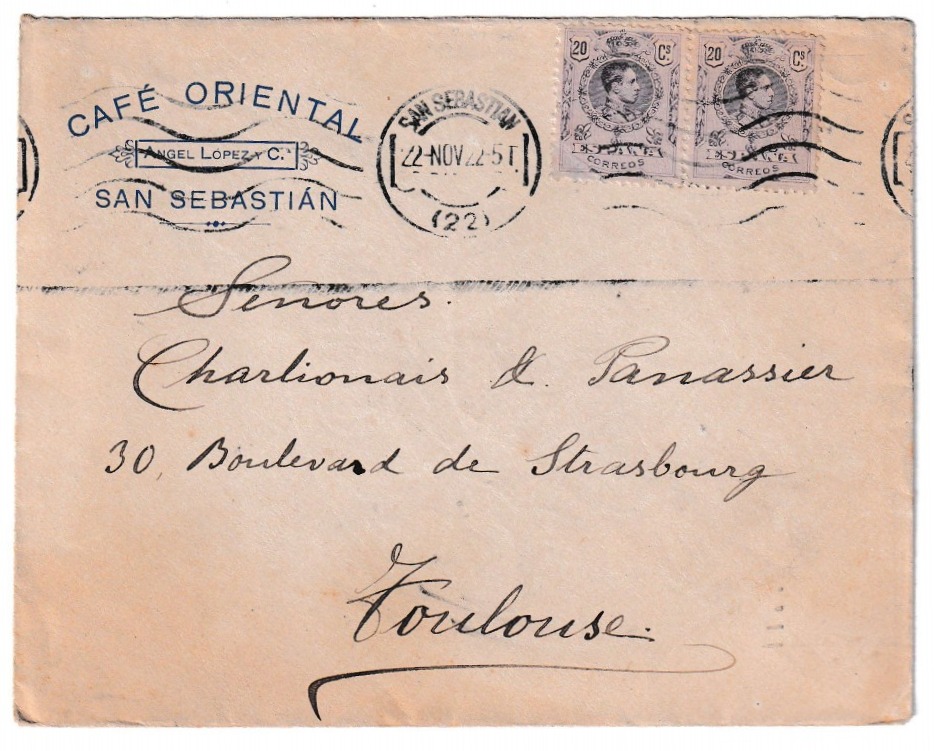 CAFÉ ORIENTAL
ANGEL LÓPEZ Y C.ª
SAN SEBASTIÁN
SAN SEBASTIAN
22-NOV 22-5T
(22)
20 Cs.
CORREOS
20 Cs.
CORREOS
Señores.
Charlionais & Panassier
30, Boulevard de Strasbourg
Toulouse.